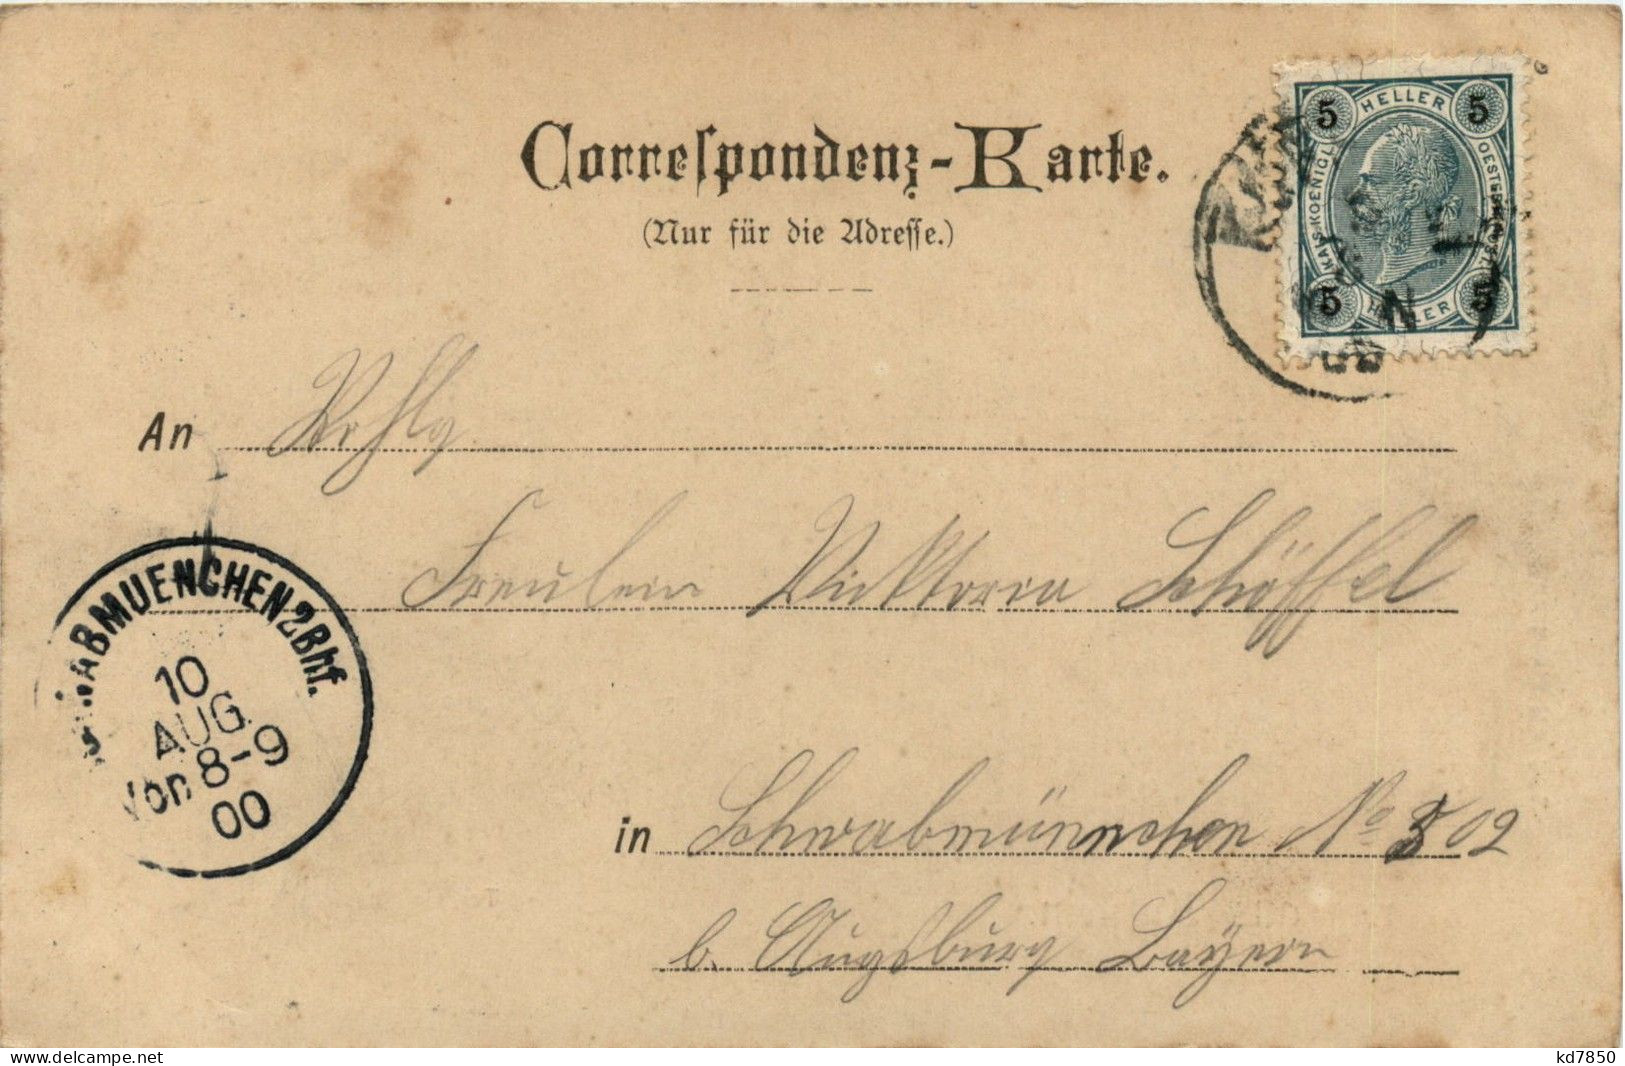 Correspondenz-Karte.
(Nur für die Adresse.)
5 HELLER 5
KAIS. KOENIGL. OESTERR. POST
5 HELLER 5
An Wohlg
Freulein Vicktoria Schöffel
ABMUENCHEN 2 Bhf.
10
AUG
Von 8-9
00
in Schwabmünnchen No 302
b. Augsburg Bayern
www.delcampe.net
kd7850